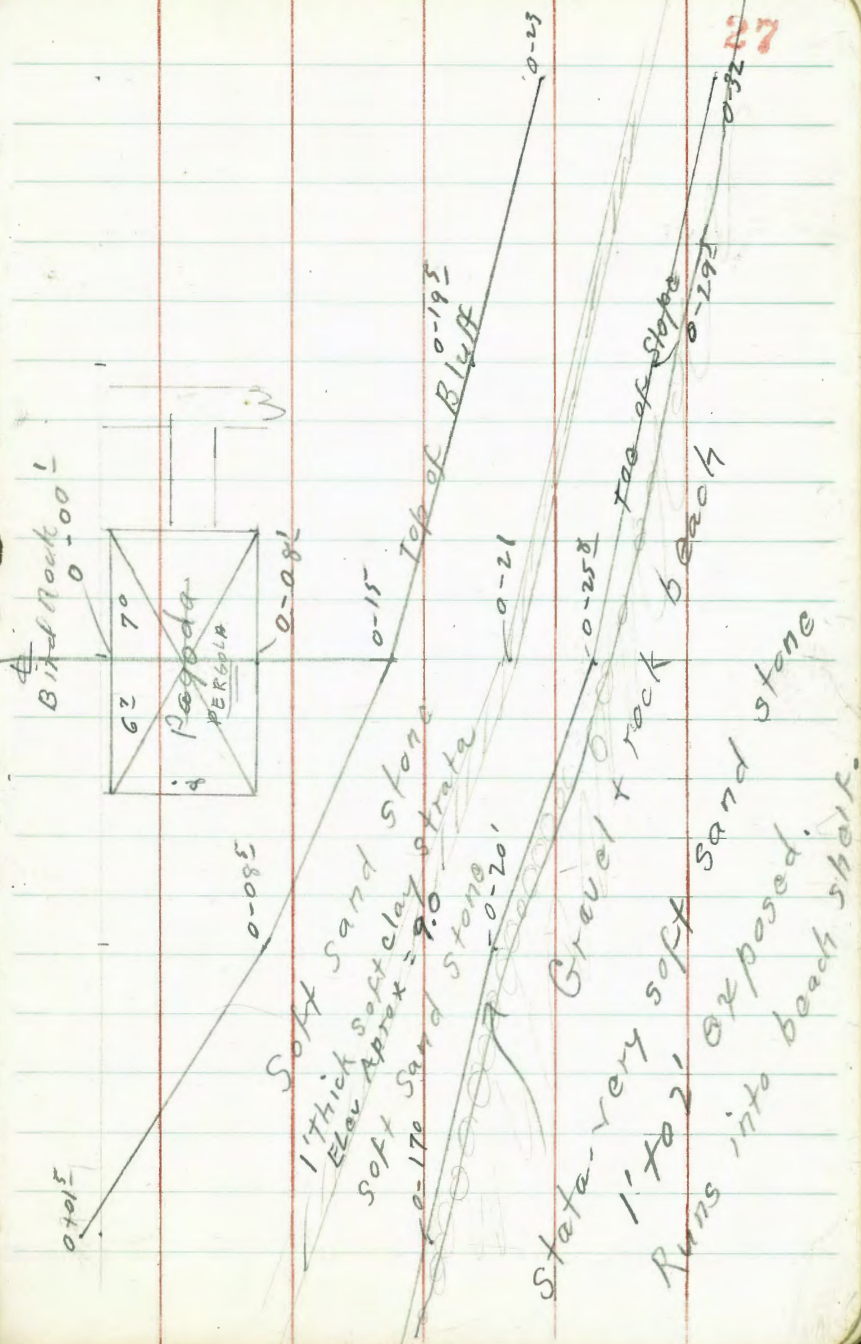 27
℄
Bird Rock
0-00'
6² 7⁰
Pagoda
PERGOLA
8'
0-08'
0+01⁵
0-08⁵
0-15
Top of Bluff
0-19⁵
0-23
Soft Sand Stone
1' Thick soft clay strata
Elev Aprox = 9.0
Soft Sand Stone
0-17⁰
0-20'
0-21
0-25⁸
Toe of Slope
0-29⁵
0-32
Gravel + rock beach
Stata-very soft sand stone
1' to 2' exposed.
Runs into beach shelf.